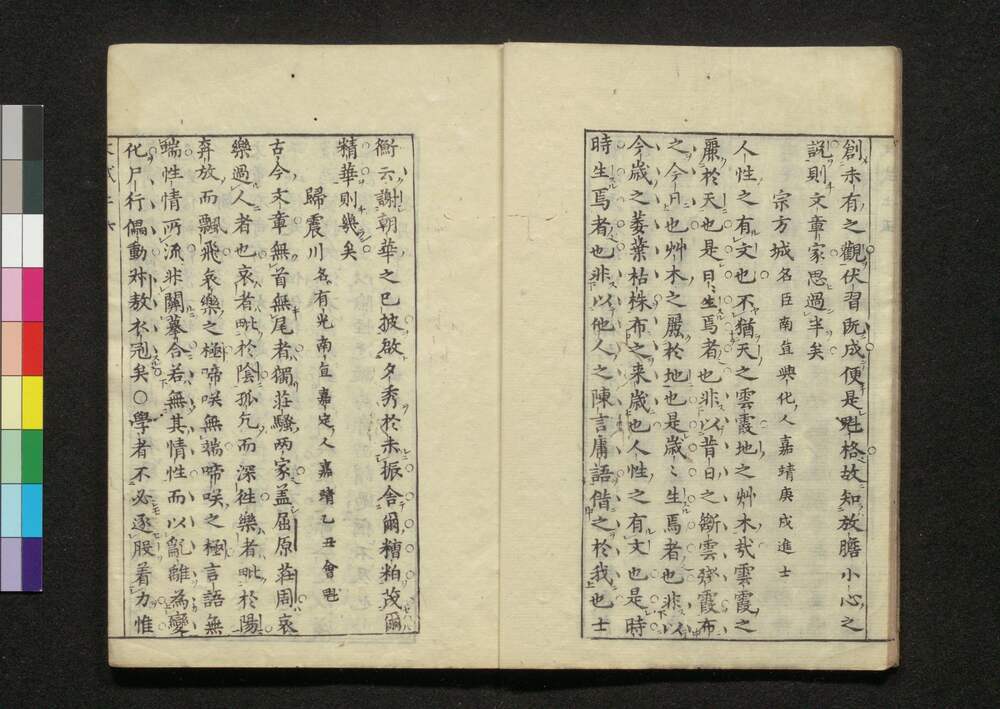 創未有之觀伏習既成便是魁格故知放膽小心之
説則文章家思過半矣
宗方城名臣南直興化人嘉靖庚戌進士
人性之有文也不猶天之雲霞地之艸木哉雲霞之
麗於天也是日〻生焉者也非以昔日之斷雲殘霞布
之今日也艸木之麗於地也是歳〻生焉者也非以
今歳之萎葉枯株布之来歳也人性之有文也是時
時生焉者也非以他人之陳言庸語偕之於我也士
衡云謝朝華之已披啟夕秀於未振舎爾糟粕茂爾
精華則幾矣
歸震川名有光南直嘉定人嘉靖乙丑會魁
古今文章無首無尾者獨莊騷兩家盖屈原莊周哀
樂過人者也哀者毗於陰孤亢而深徃樂者毗於陽
奔放而飄飛哀樂之極啼咲無端啼咲之極言語無
端性情所流非關摹合若無其情性而以亂離為變
化尸行偪動、叔敖衣冠矣〇學者不必逐股着力惟